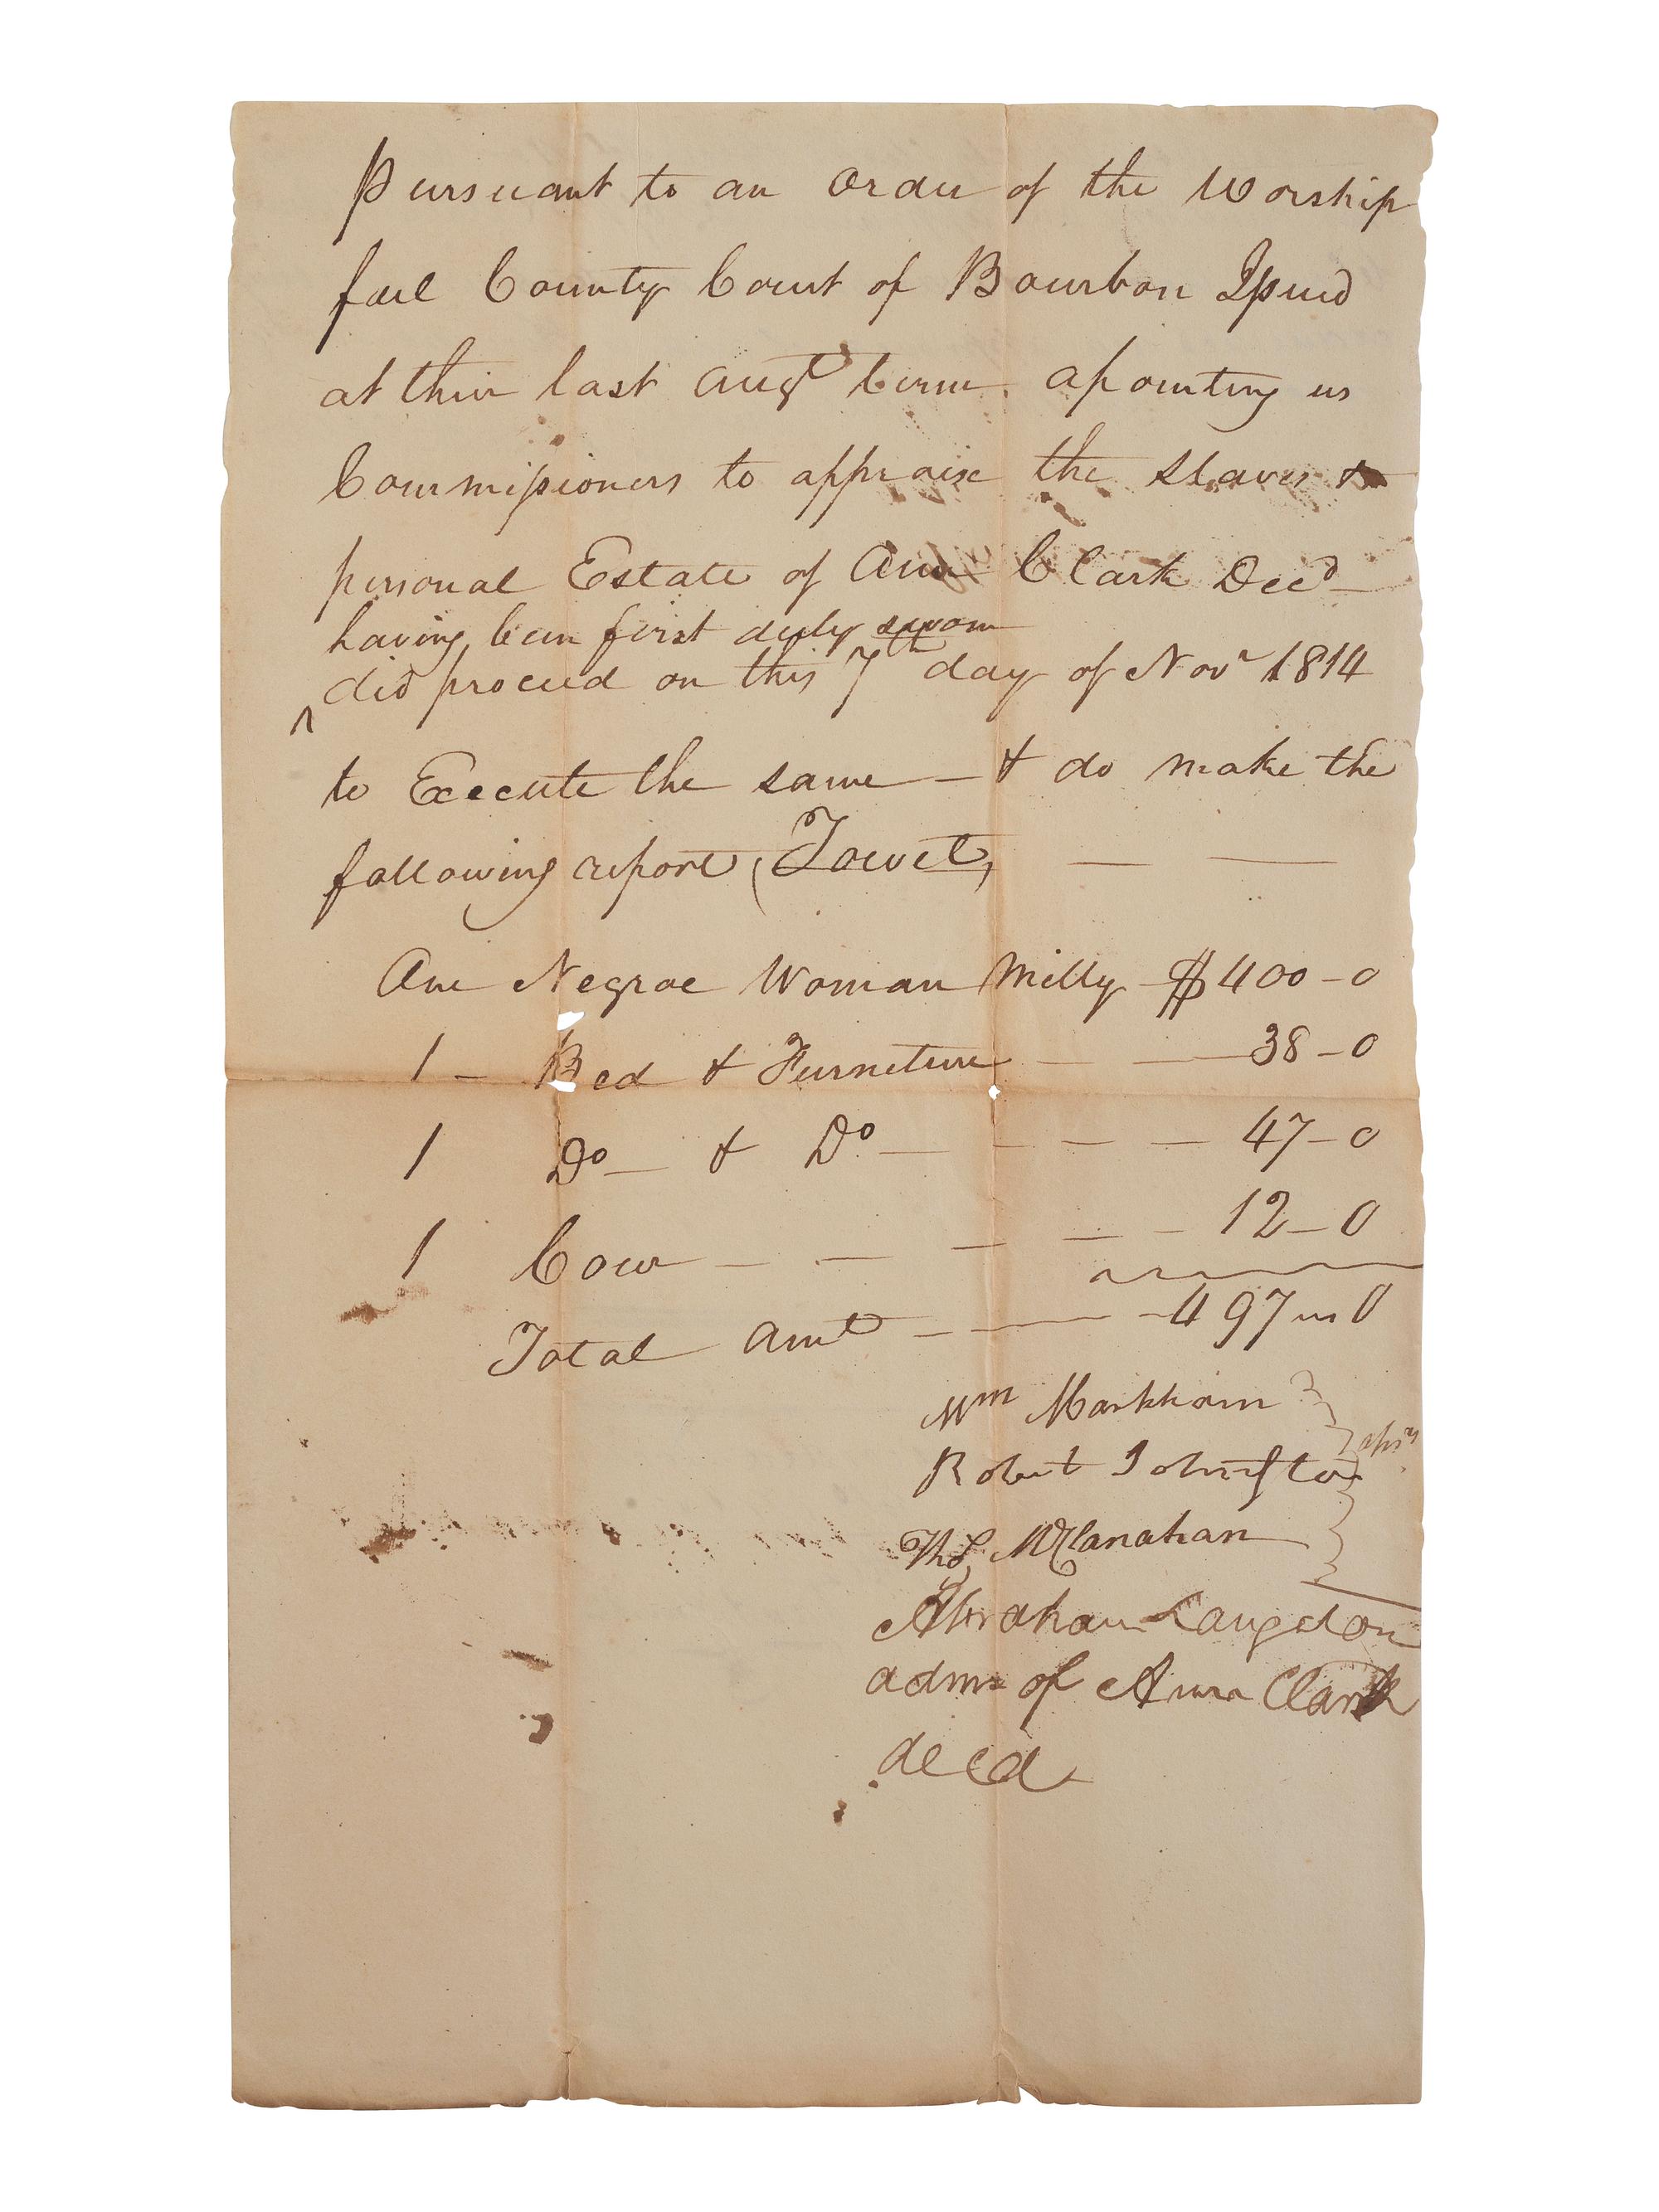 Pursuant to an order of the Worship
full County Court of Bourbon Issued
at thier last Augt term apointing us
Commissioners to appraise the slaves &
personal Estate of Ann Clark Decd
having been first duly sworn
^ did proceed on this 7th day of Novr 1814
to Execute the same — & do make the
following report, (Towit,) — —
One Negroe Woman Milly $400-0
1 - Bed & Furneture — — 38-0
1 Do — & Do — — — 47-0
1 Cow — — — — — 12-0
Total Amt — — 497 " 0
Wm Markham
Robert Johnston
Thos McClanahan
Abraham Langston
admr of Anna Clark
decd